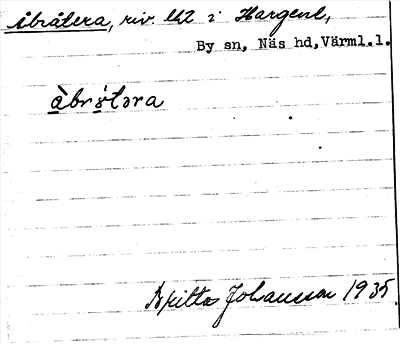 Åbråtera, riv. till i Hargene,
By sn, Näs hd, Värml.l.
àbrátəra
Britta Johansson 1935